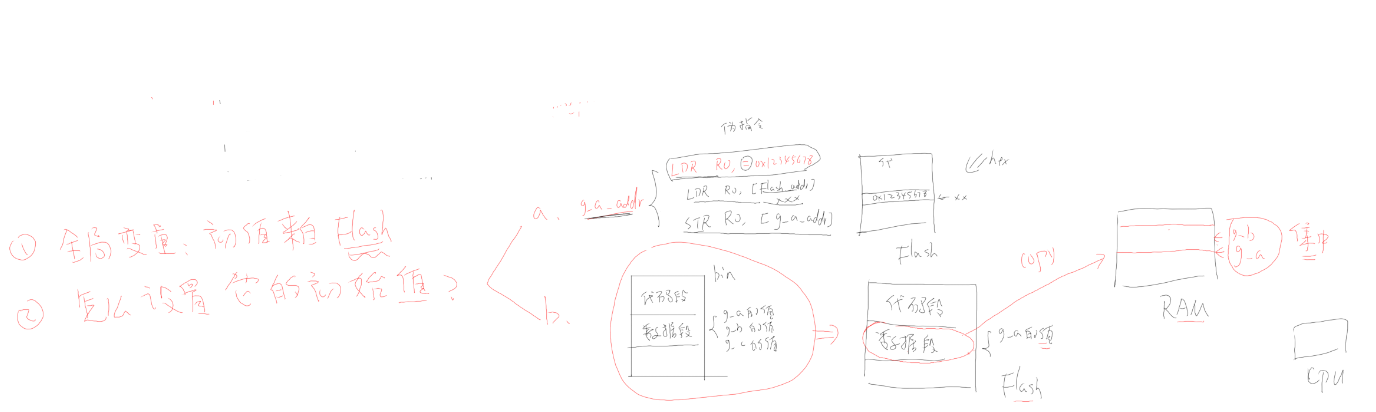 ① 全局变量：初值来自 Flash
② 怎么设置它的初始值？
a. g_a_addr
伪指令
LDR R0, =0x12345678
LDR R0, [Flash_addr]
xxx
STR R0, [g_a_addr]
hex
0x12345678
xx
Flash
b.
bin
代码段
数据段
g_a的值
g_b的值
g_c的值
代码段
数据段
g_a的值
Flash
copy
g_b
g_a
集中
RAM
CPU